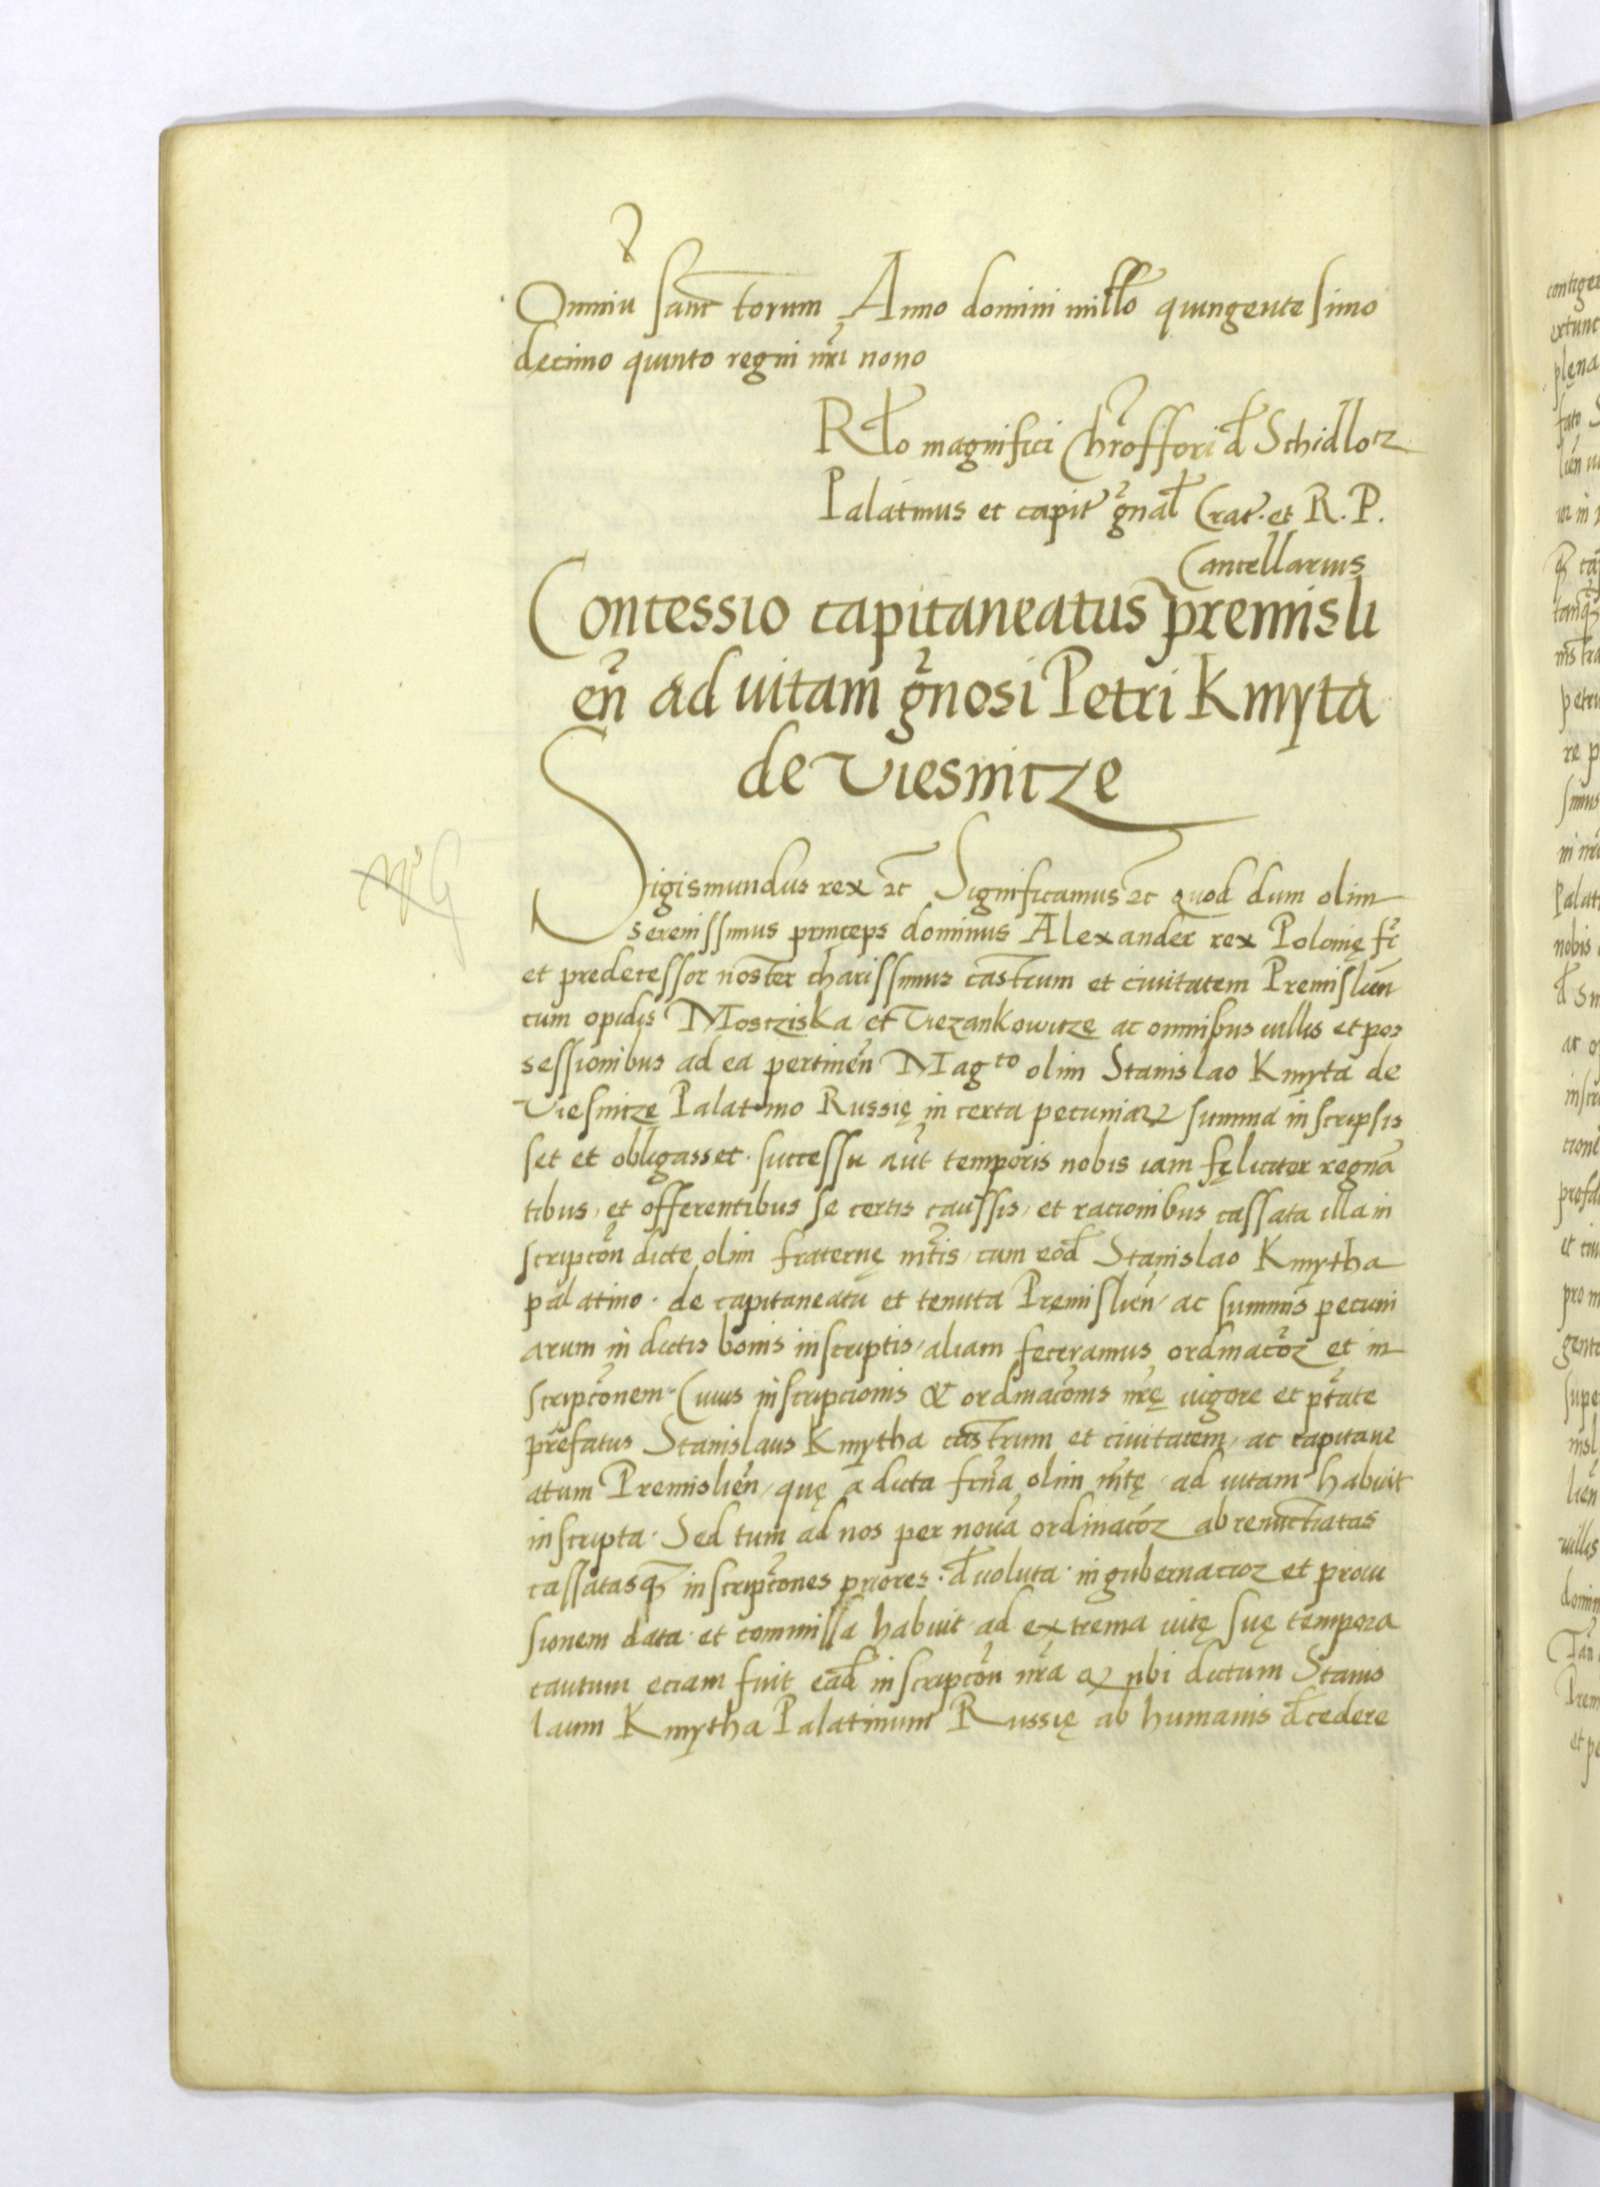 Omniu sanctorum Anno domini millo quingentesimo
decimo quinto regni nri nono
Rlo magnifici Chrofferi d Schidlotz
Palatinus et capit gnal Crac. et R. P.
Cancellarius
Concessio capitaneatus premisli
en ad uitam gnosi Petri Kmyta
de Viesnitze
Sigismundus rex etc Significamus etc quod dum olim
serenissimus princeps dominus Alexander rex Polonię fr
et predecessor noster charissimus castrum et ciuitatem Premislien
cum opidis Mostziska et Viezankowitzę ac omnibus uillis et pos
sessionibus ad ea pertinen Magco olim Stanislao Kmyta de
Viesnitzę Palatino Russię in certa pecuniaꝝ summa inscripsis
set et obligasset. successu aut temporis nobis iam fęliciter regnā
tibus, et offerentibus se certis caussis, et racionibus cassata illa in
scripcon dicte olim fraternę mtis, cum eod Stanislao Kmytha
palatino. de capitaneatu et tenuta Pręmislien, ac summis pecuni
arum in dictis bonis inscriptis, aliam feceramus ordinacoz et in
scripconem. Cuius inscripcionis & ordinaconis nrę uigore et ptate
prefatus Stanislaus Kmytha castrum et ciuitatem, ac capitane
atum Premislien, quę a dicta frna olim mtę, ad uitam habuit
inscripta. Sed tum ad nos per nouā ordinacoz abrenunctiatas
cassatasqꝫ inscripcones priores. duoluta. in gubernacioz et proui
sionem data. et commissa habuit. ad extrema uitę suę tempora
cautum eciam fuit ead inscripcon nra qꝫ ubi dictum Stanis
laum Kmytha Palatinum Russię ab humanis dcedere